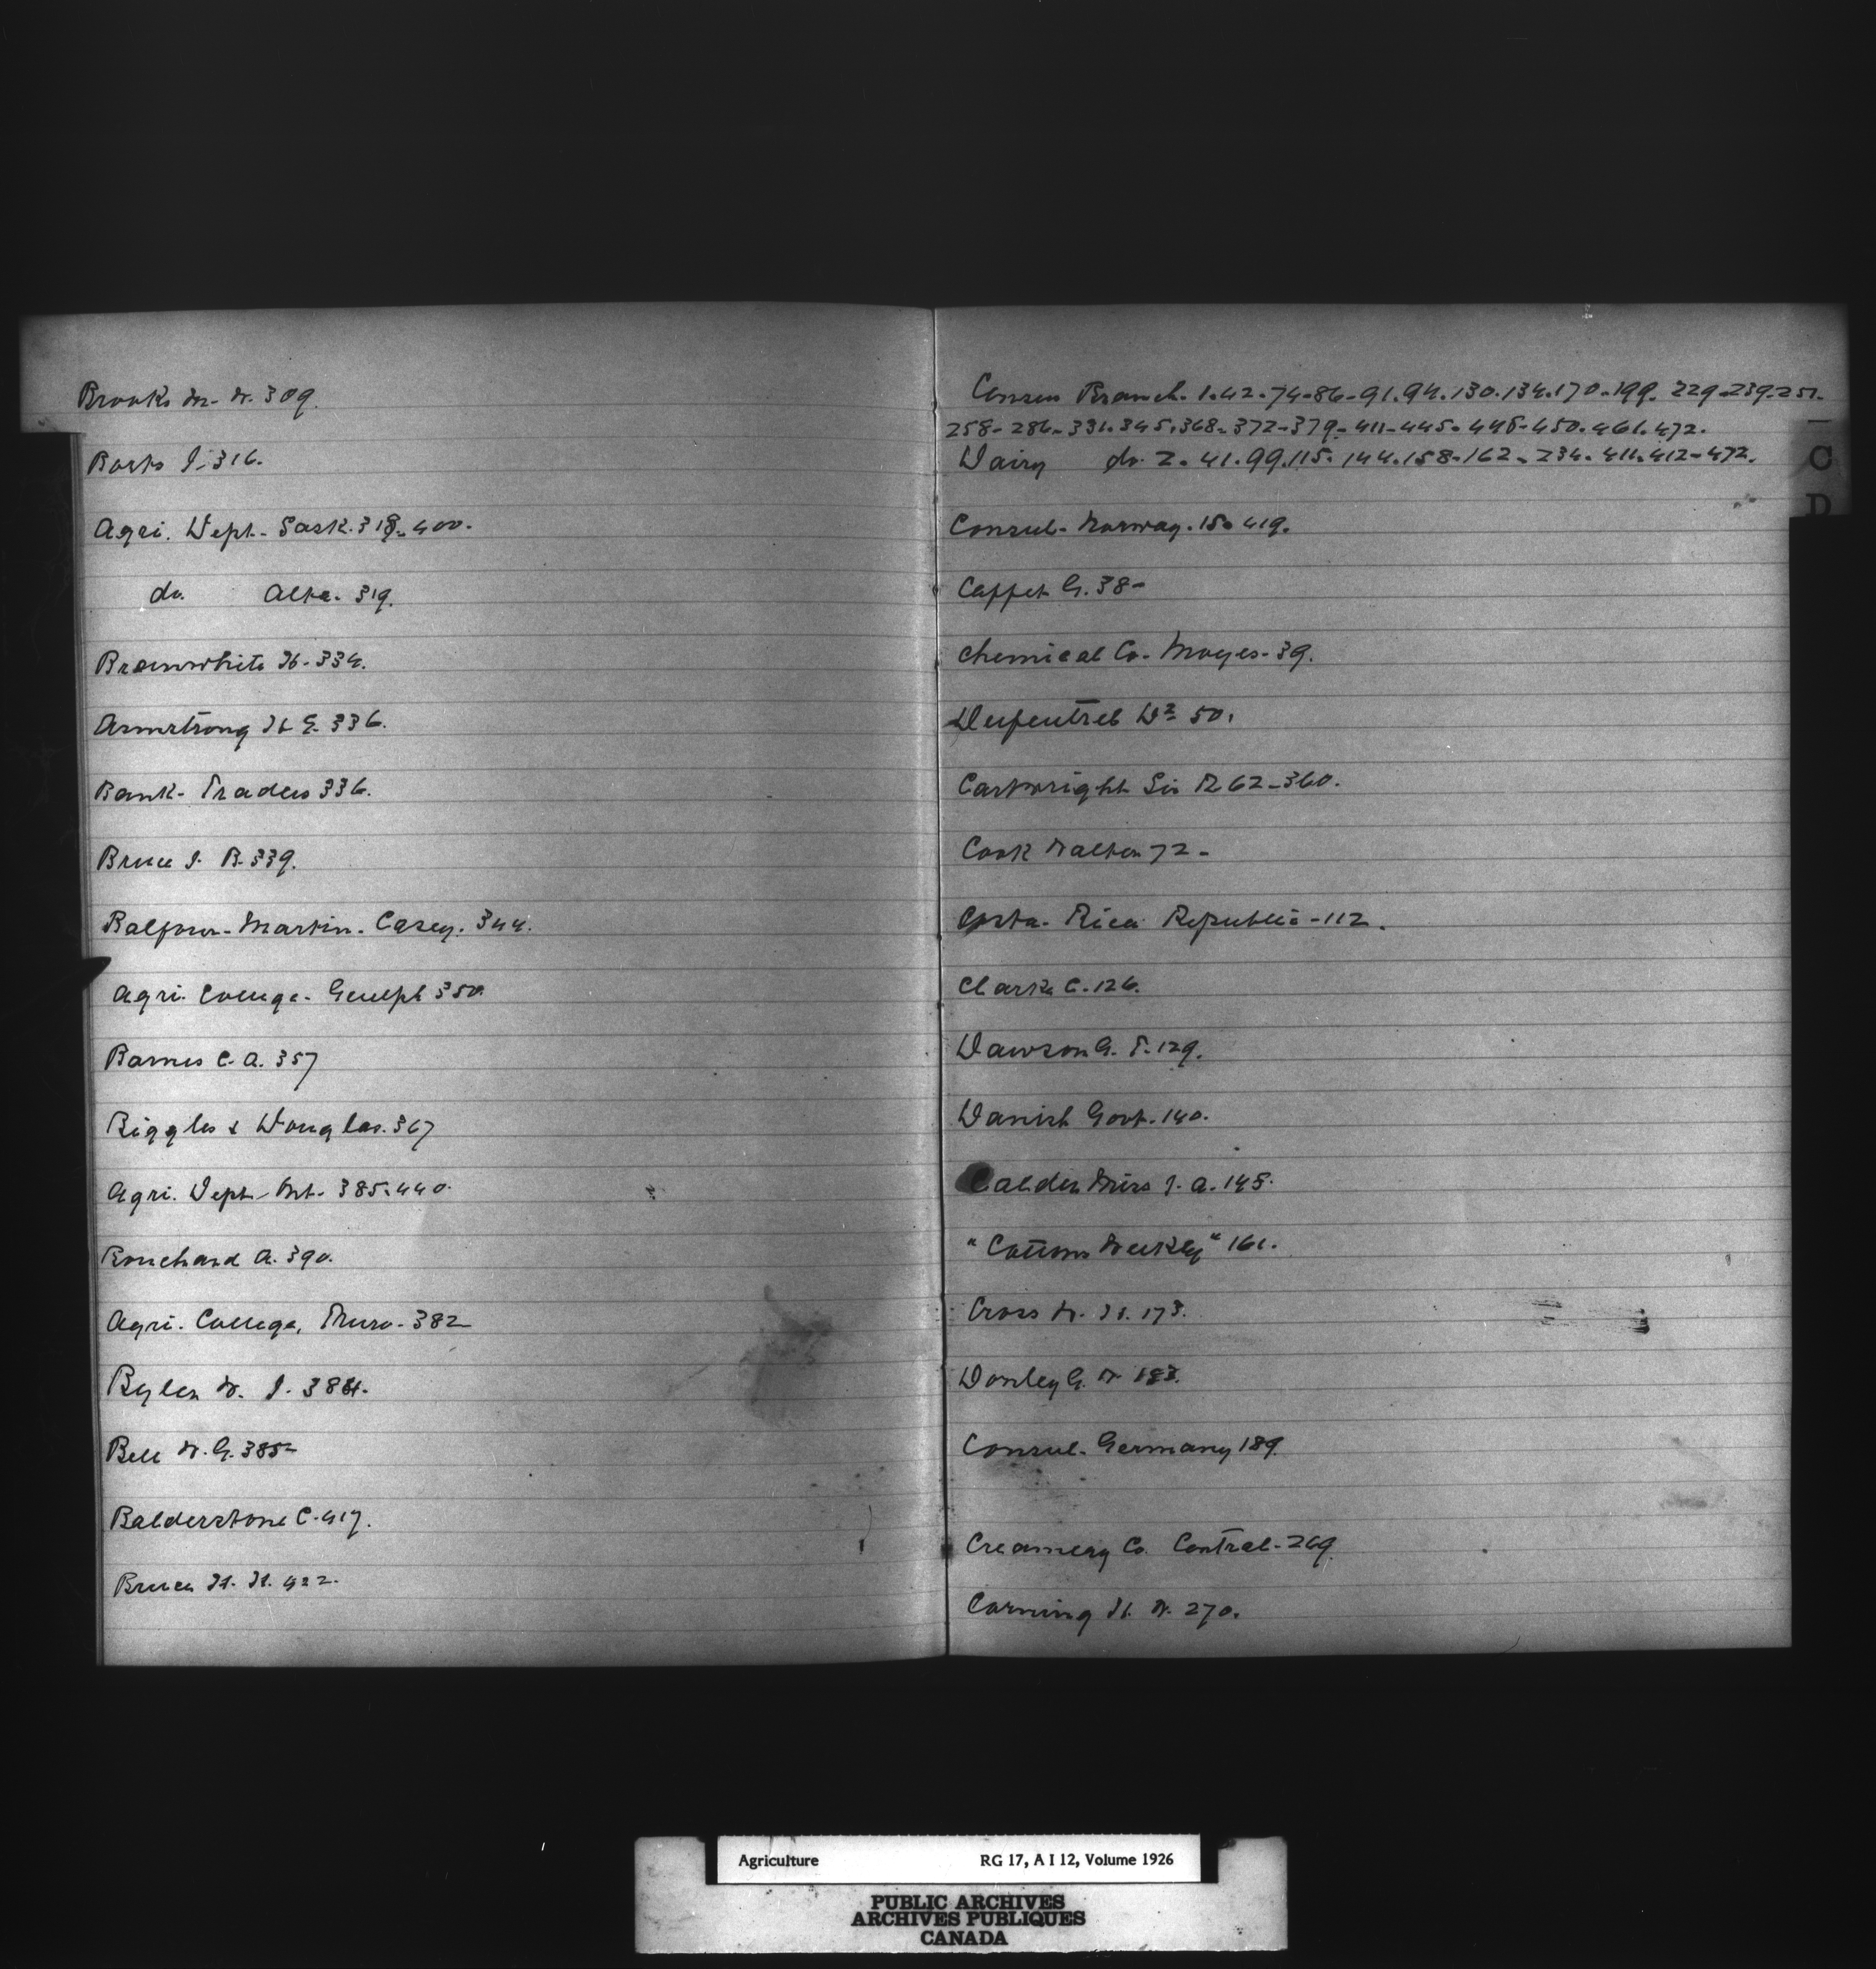 Brooks M. W. 309.
Barks J. 316.
Agri. Dept. Sask. 318-400.
do. Alta. 319.
Branwhite H. 334.
Armstrong H. E. 336.
Bank- Traders 336.
Bruce J. B. 339.
Balfour- Martin- Casey. 344.
Agri. College- Guelph 350.
Barnes C. A. 357
Biggles & Douglas. 367
Agri. Dept- Ont- 385.440.
Bouchard A. 390.
Agri. College, Truro- 382
Byler W. J. 384.
Bell W. G. 385-
Balderstone C. 417.
Bruce H. H. 422.
Census Branch. 1.42.74-86-91.94.130.134.170-199. 229-239-251.
258-286-331.345.368-372-379-411-445.448-450.461.472.
Dairy do. 2.41.99.115.144.158-162-234.411.412-472.
Consul- Norway. 150 419.
G. 38-
Chemical Co- Moyes- 39.
Dr 50.
Cartwright Sir R 62-360.
Cook Walter 72-
Costa- Rica Republic-112.
Clarke C. 126.
Dawson G. T. 129.
Danish Govt. 140.
Calder Mrs J. A. 145.
"Cottons Weekly" 161.
Cross W. H. 173.
Donley G. W 183.
Consul- Germany 189.
Creamery Co. Central-269.
Corning H. W. 270.
C
D
Agriculture RG 17, A I 12, Volume 1926
PUBLIC ARCHIVES
ARCHIVES PUBLIQUES
CANADA